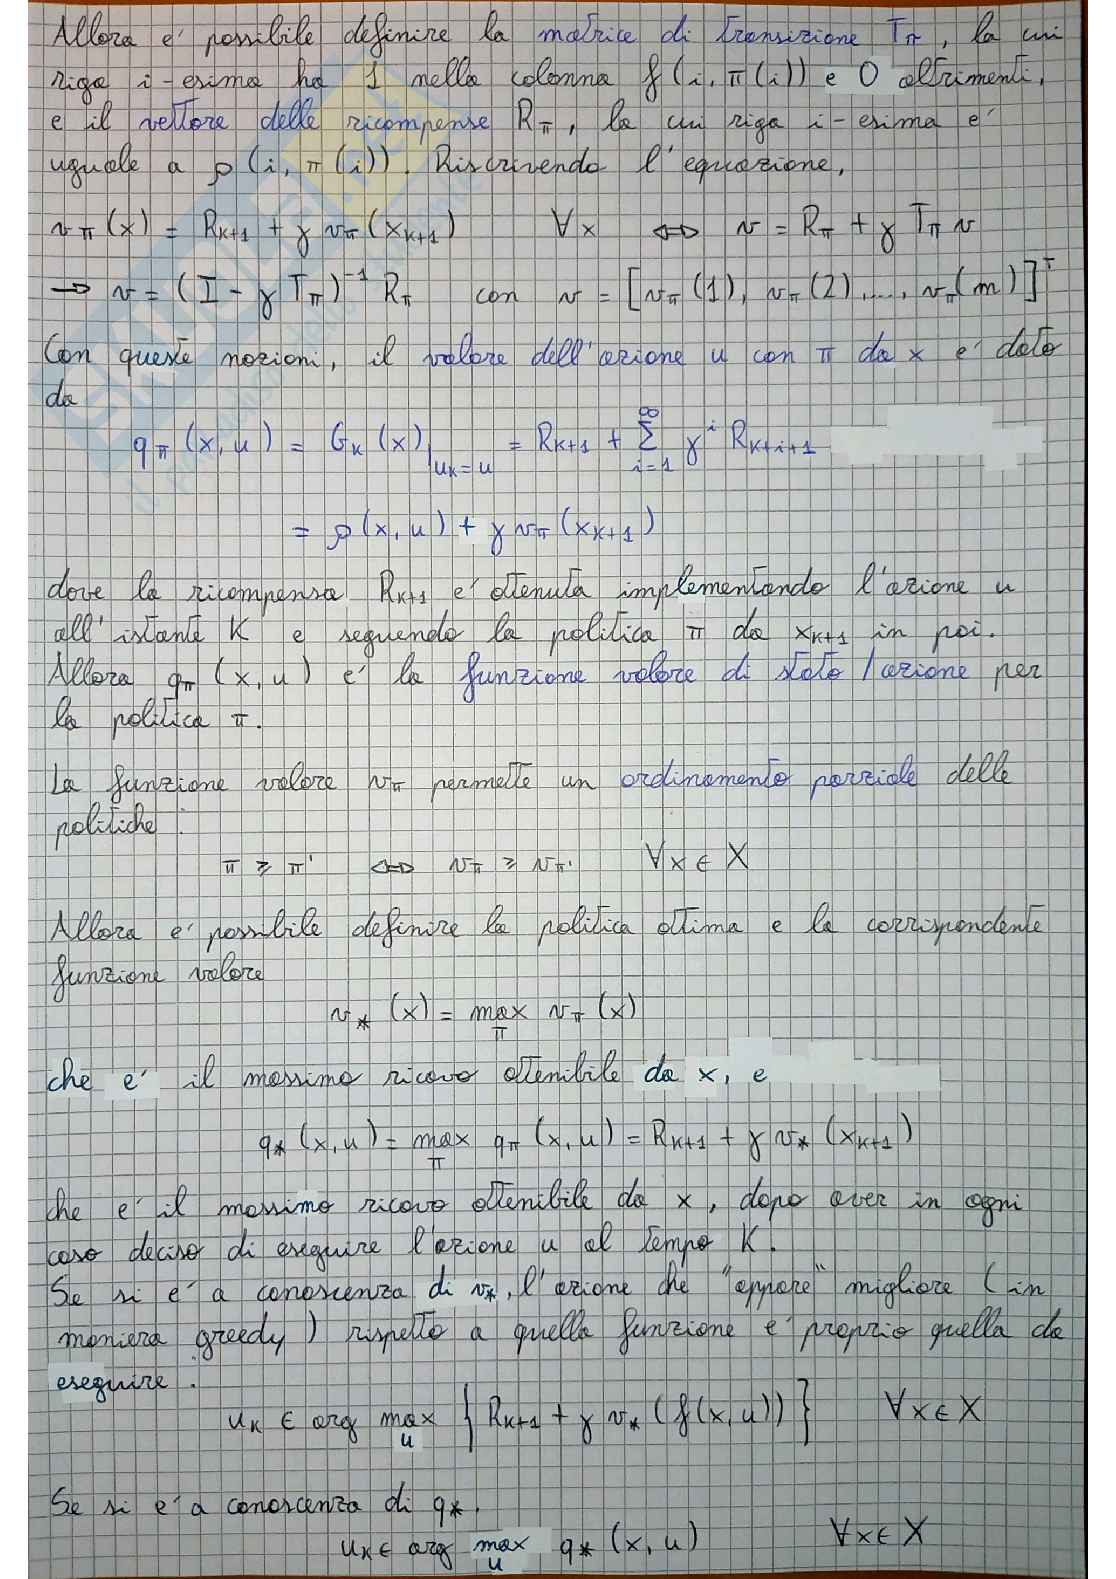 Allora e' possibile definire la matrice di transizione Tπ, la cui
riga i-esima ha 1 nella colonna f(i, π(i)) e 0 altrimenti,
e il vettore delle ricompense Rπ, la cui riga i-esima e'
uguale a ρ(i, π(i)). Riscrivendo l'equazione,
vπ(x) = Rk+1 + γ vπ(xk+1) ∀x ⇔ v = Rπ + γ Tπ v
→ v = (I - γ Tπ)⁻¹ Rπ con v = [vπ(1), vπ(2), ..., vπ(m)]ᵀ
Con queste nozioni, il valore dell'azione u con π da x e' dato
da
qπ(x, u) = Gk(x)|uk=u = Rk+1 + ∑i=1^∞ γⁱ Rk+i+1
= ρ(x, u) + γ vπ(xk+1)
dove la ricompensa Rk+1 e' ottenuta implementando l'azione u
all'istante K e seguendo la politica π da xk+1 in poi.
Allora qπ(x, u) e' la funzione valore di stato/azione per
la politica π.
La funzione valore vπ permette un ordinamento parziale delle
politiche:
π ≥ π' ⇔ vπ ≥ vπ' ∀x ∈ X
Allora e' possibile definire la politica ottima e la corrispondente
funzione valore
v*(x) = max π vπ(x)
che e' il massimo ricavo ottenibile da x, e
q*(x, u) = max π qπ(x, u) = Rk+1 + γ v*(xk+1)
che e' il massimo ricavo ottenibile da x, dopo aver in ogni
caso deciso di eseguire l'azione u al tempo K.
Se si e' a conoscenza di v*, l'azione che "appare" migliore (in
maniera greedy) rispetto a quella funzione e' proprio quella da
eseguire.
uk ∈ arg max u {Rk+1 + γ v*(f(x, u))} ∀x ∈ X
Se si e' a conoscenza di q*,
uk ∈ arg max u q*(x, u) ∀x ∈ X